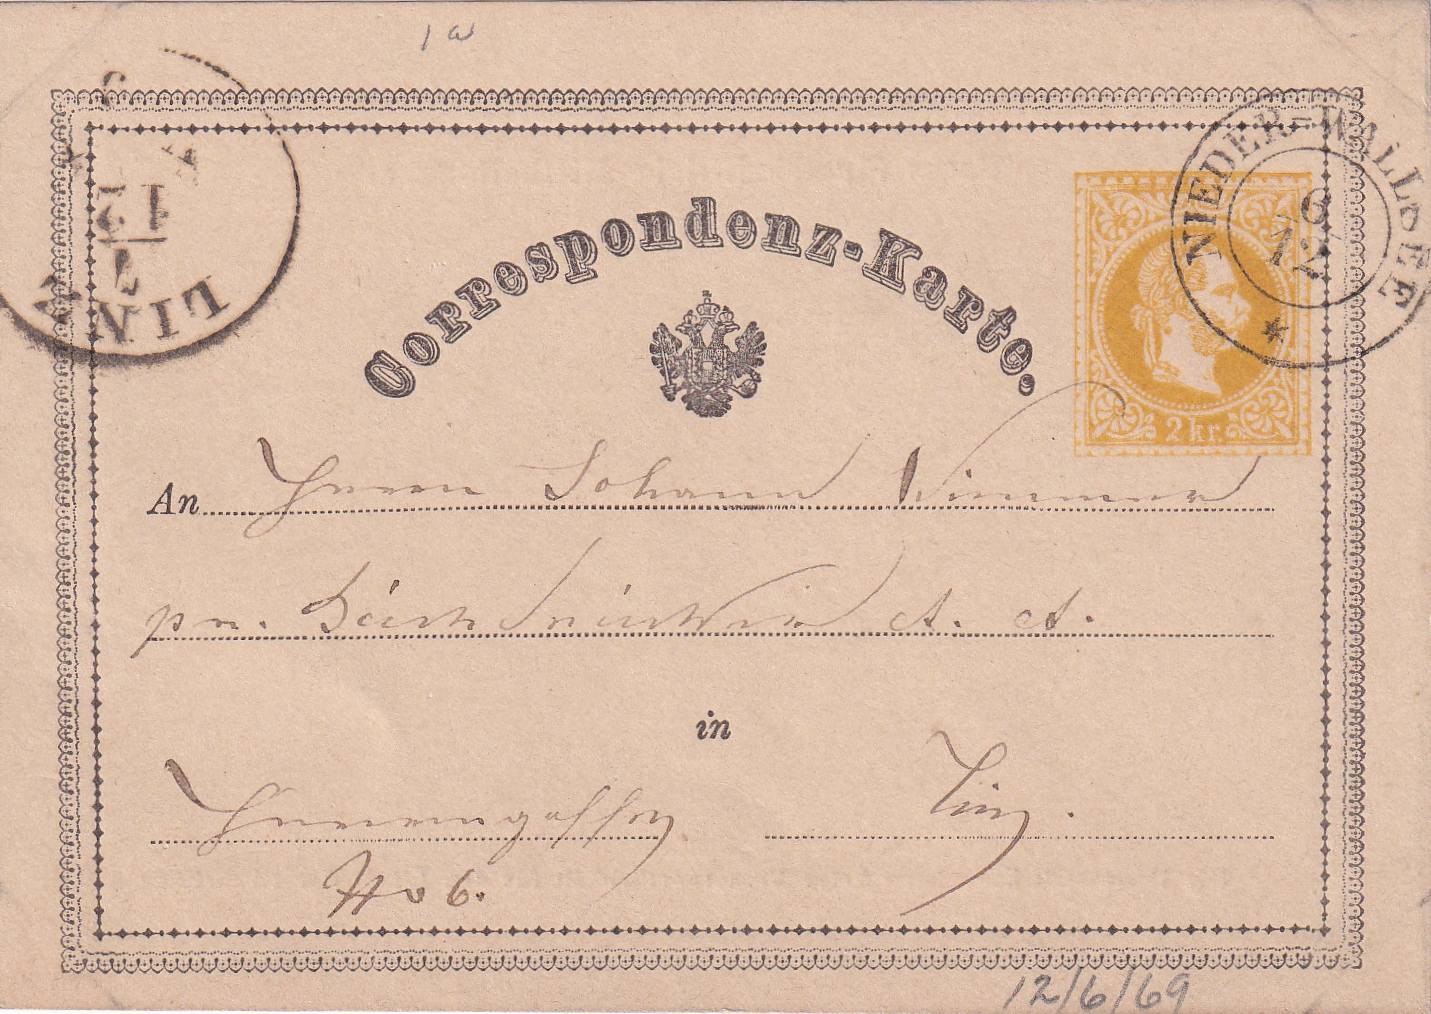 1 a
Correspondenz-Karte.
NIEDER-WALLSEE
6
12
2 kr.
LINZ
12
7
An Herrn Johann Wimmer
pr.
in
Herrengasse Linz.
No 6.
12/6/69